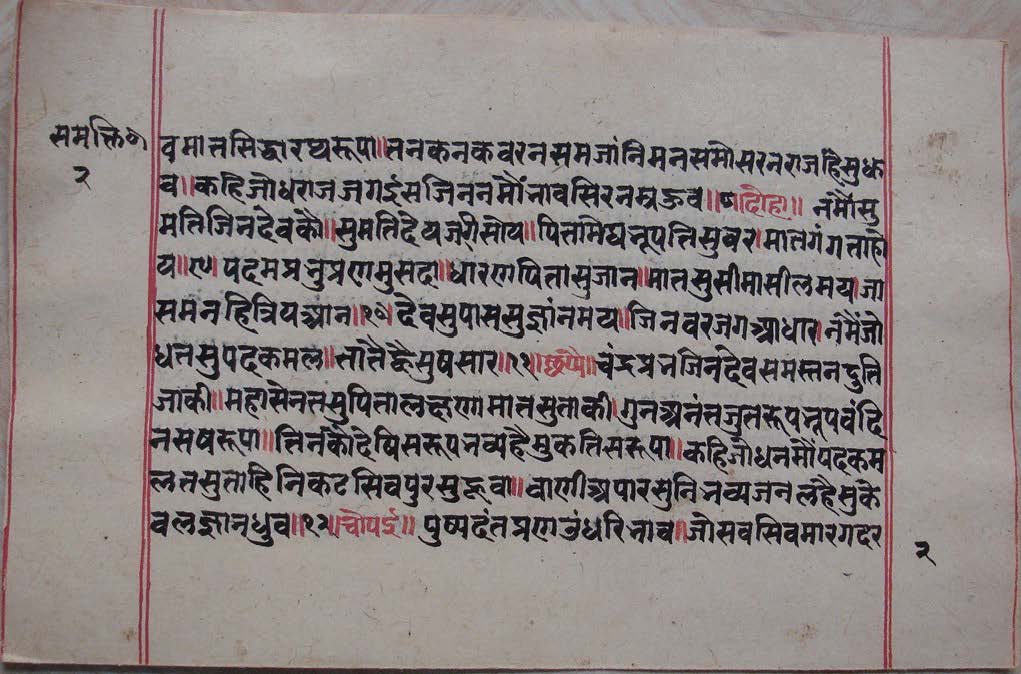 समकित्त॰
२
वमातसिद्धारथरूपा॥तनकनकवरनसमजांनिमनसमौसरनराजहिसुधक
व॥कहिजोधराजजगईसजिननमौंनावसिरनम्रऊव॥८॥दोहा॥ नंमौसु
मतिजिनदेवकौ॥सुमतिदेयजगीसोय॥पितामेघनृपतिसुवर।मातगंगताहो
य॥९॥पदमप्रभुप्रणमुसदा॥धारणपितासुजान॥मातसुसीमासीलमय।जा
समनहित्रियआन॥१०॥देवसुपाससुज्ञांनमय॥जिनवरजगआधार।नमैंजो
धतसुपदकमल॥तातैह्वैसुषसार॥११॥छप्पै॥चंद्रप्रभजिनदेवसमस्तनदुति
जाकी॥महासेनतसुपितालछणामातसुताकी।गुनअनंतजुतरूपनृपवंदि
नसषरूपा॥तिनकौंदेषिसरूपभव्यहैमुकतिसरूपा॥कहिजोधनमौंपदकम
लतसुताहिनिकटसिवपुरसुहूवा॥वाणीअपारसुनिभव्यजनलहैसुके
वलज्ञानध्रुव॥१२॥चौपई॥ पुष्पदंतप्रणउंधरिभाव॥जोसवसिवमारगदर
२